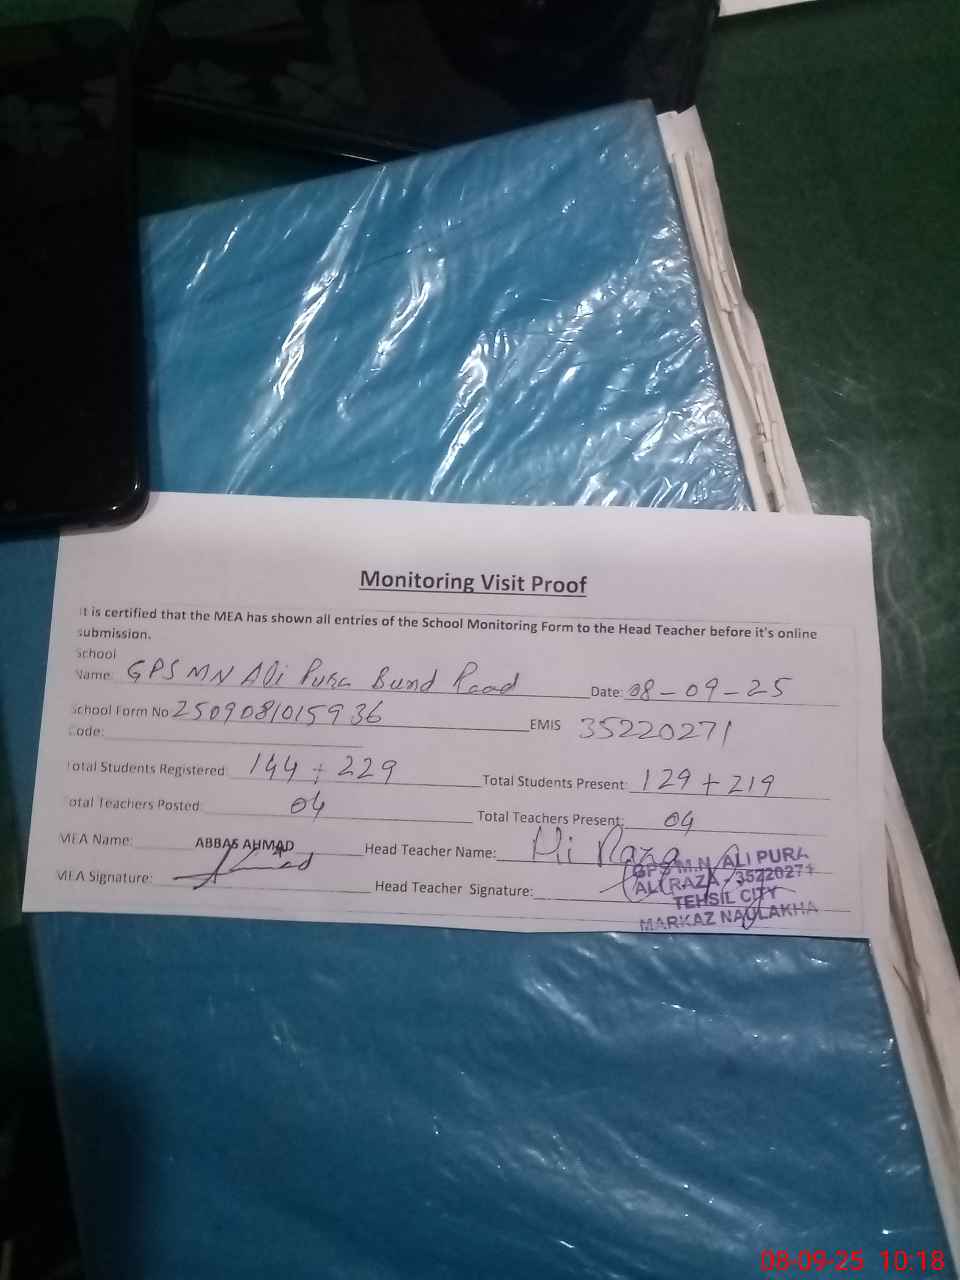 Monitoring Visit Proof
It is certified that the MEA has shown all entries of the School Monitoring Form to the Head Teacher before it's online
submission.
School
Name: GPS MN Ali Pura Bund Road Date: 08-09-25
School Form No 2509081015936 EMIS 35220271
Code:
Total Students Registered: 144 + 229 Total Students Present: 129 + 219
Total Teachers Posted: 04 Total Teachers Present: 04
MEA Name: ABBAS AHMAD Head Teacher Name: Ali Raza
MEA Signature: Head Teacher Signature:
GPS M.N ALI PURA
ALI RAZA 35220271
TEHSIL CITY
MARKAZ NAULAKHA
08-09-25 10:18